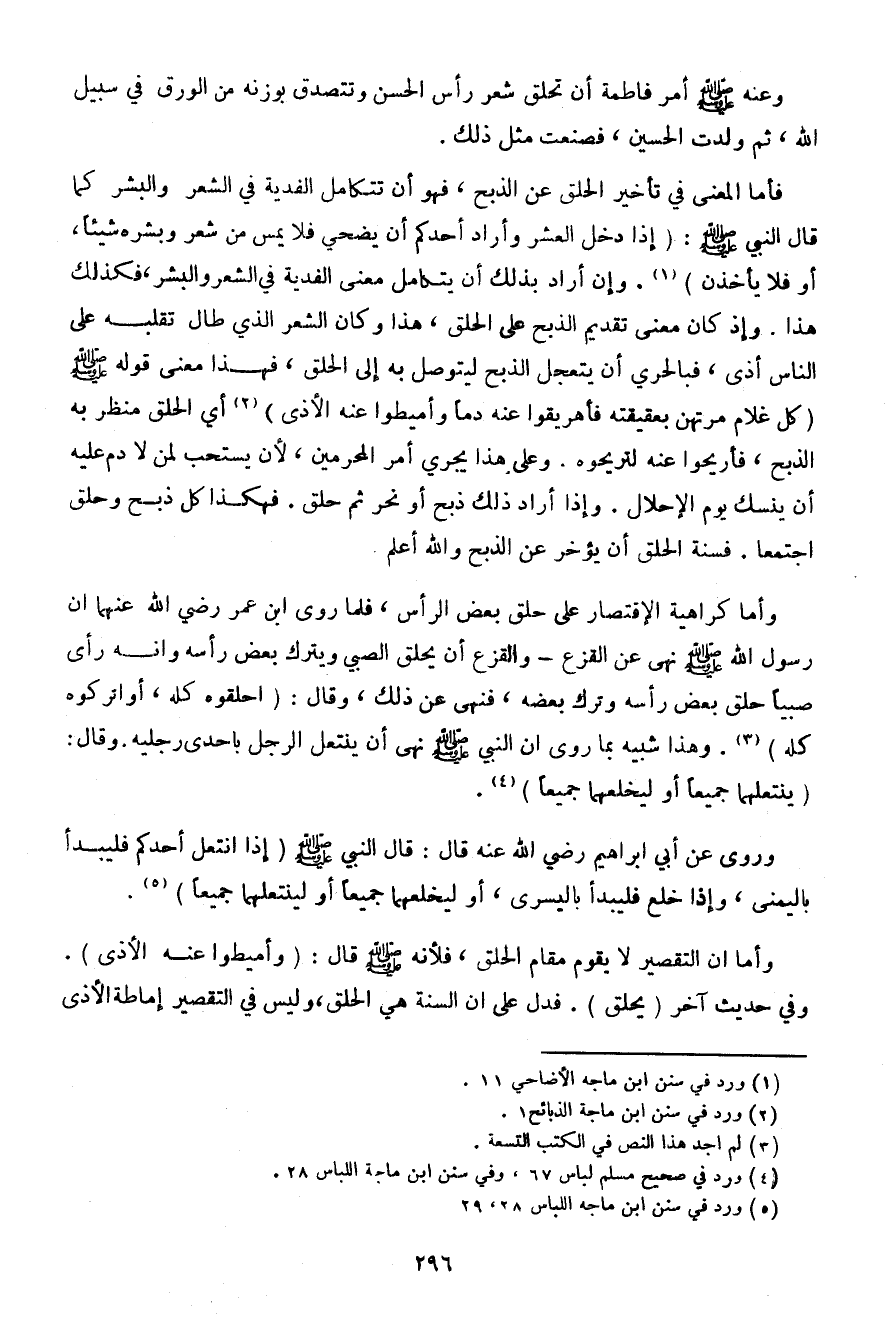 وعنه ﷺ أمر فاطمة أن تحلق شعر رأس الحسن وتتصدق بوزنه من الورق في سبيل
الله ، ثم ولدت الحسين ، فصنعت مثل ذلك .
فأما المعنى في تأخير الحلق عن الذبح ، فهو أن تتكامل الفدية في الشعر والبشر كما
قال النبي ﷺ : ( إذا دخل العشر وأراد أحدكم أن يضحي فلا يمس من شعر وبشره شيئاً ،
أو فلا يأخذن ) (١) . وإن أراد بذلك أن يتكامل معنى الفدية في الشعر والبشر ، فكذلك
هذا . وإذ كان معنى تقديم الذبح على الحلق ، هذا وكان الشعر الذي طال تقلبه على
الناس أذى ، فبالحري أن يتعجل الذبح ليتوصل به إلى الحلق ، فهذا معنى قوله ﷺ
( كل غلام مرتهن بعقيقته فأهريقوا عنه دماً وأميطوا عنه الأذى ) (٢) أي الحلق منظر به
الذبح ، فأريحوا عنه لتريحوه . وعلى هذا يجري أمر المحرمين ، لأن يستحب لمن لا دم عليه
أن ينسك يوم الإحلال . وإذا أراد ذلك ذبح أو نحر ثم حلق . فهكذا كل ذبح وحلق
اجتمعا . فسنة الحلق أن يؤخر عن الذبح والله أعلم .
وأما كراهية الإقتصار على حلق بعض الرأس ، فلما روى ابن عمر رضي الله عنهما ان
رسول الله ﷺ نهى عن القزع – والقزع أن يحلق الصبي ويترك بعض رأسه وانه رأى
صبياً حلق بعض رأسه وترك بعضه ، فنهى عن ذلك ، وقال : ( احلقوه كله ، أو اتركوه
كله ) (٣) . وهذا شبيه بما روى ان النبي ﷺ نهى أن ينتعل الرجل باحدى رجليه . وقال :
( ينتعلهما جميعاً أو ليخلعهما جميعاً ) (٤) .
وروى عن أبي ابراهيم رضي الله عنه قال : قال النبي ﷺ ( إذا انتعل أحدكم فليبدأ
باليمنى ، وإذا خلع فليبدأ باليسرى ، أو ليخلعهما جميعاً أو لينتعلهما جميعاً ) (٥) .
وأما ان التقصير لا يقوم مقام الحلق ، فلأنه ﷺ قال : ( وأميطوا عنه الأذى ) .
وفي حديث آخر ( يحلق ) . فدل على ان السنة هي الحلق ، وليس في التقصير إماطة الأذى
(١) ورد في سنن ابن ماجه الأضاحي ١١ .
(٢) ورد في سنن ابن ماجة الذبائح ١ .
(٣) لم اجد هذا النص في الكتب التسعة .
(٤) ورد في صحيح مسلم لباس ٦٧ ، وفي سنن ابن ماجة اللباس ٢٨ .
(٥) ورد في سنن ابن ماجه اللباس ٢٨ ، ٢٩
٢٩٦